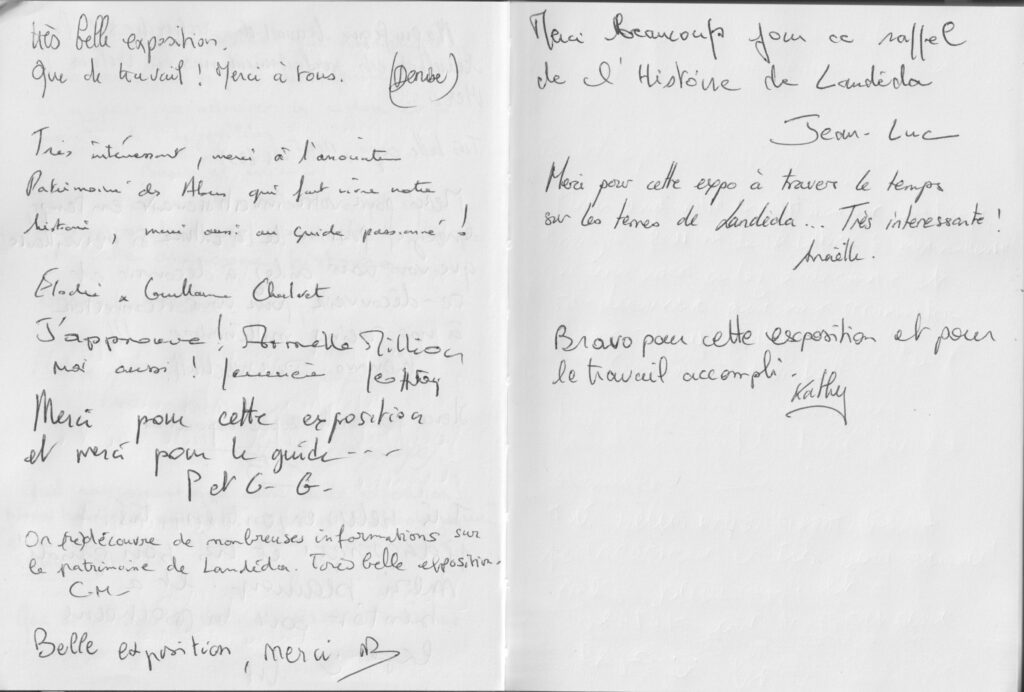 très belle exposition.
Que de travail ! Merci à tous. (Denise)
Très intéressant, merci à l'association
Patrimoine des Abers qui fait vivre notre
histoire, merci aussi au guide passionné !
Elodie & Guillaume Chalvet
J'approuve !
moi aussi !
Merci pour cette exposition
et merci pour le guide ---
P et G- G-
On (re)découvre de nombreuses informations sur
le patrimoine de Landéda. Très belle exposition.
C-M-
Belle exposition, merci
Merci Beaucoup pour ce rappel
de l'Histoire de Landéda
Jean-Luc
Merci pour cette expo à travers le temps
sur les terres de Landéda... Très interessante !
Anaëlle.
Bravo pour cette exposition et pour
le travail accompli.
Kathy